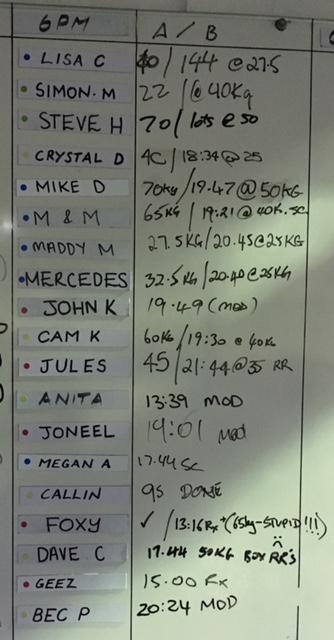 6PM A / B
LISA C 40/144 @27.5
SIMON. M 22/@40Kg
STEVE H 70/ lots @ 50
CRYSTAL D 40/18:34@25
MIKE D 70kg/19.47@50KG
M & M 65KG/19:21@40K.SC
MADDY M 27.5KG/20.45@25KG
MERCEDES 32.5KG/20.40@25KG
JOHN K 19.49 (MOD)
CAM K 60KG/19:30 @ 40KG
JULES 45/21:44@35 RR
ANITA 13:39 MOD
JONEEL 19:01 Mod
MEGAN A 17.44 SC
CALLIN 95 DONE
FOXY ✓ /13:16Rx+(65kg-STUPID!!!)
DAVE C 17.44 50KG BOX RR'S
GEEZ 15.00 Rx
BEC P 20:24 MOD